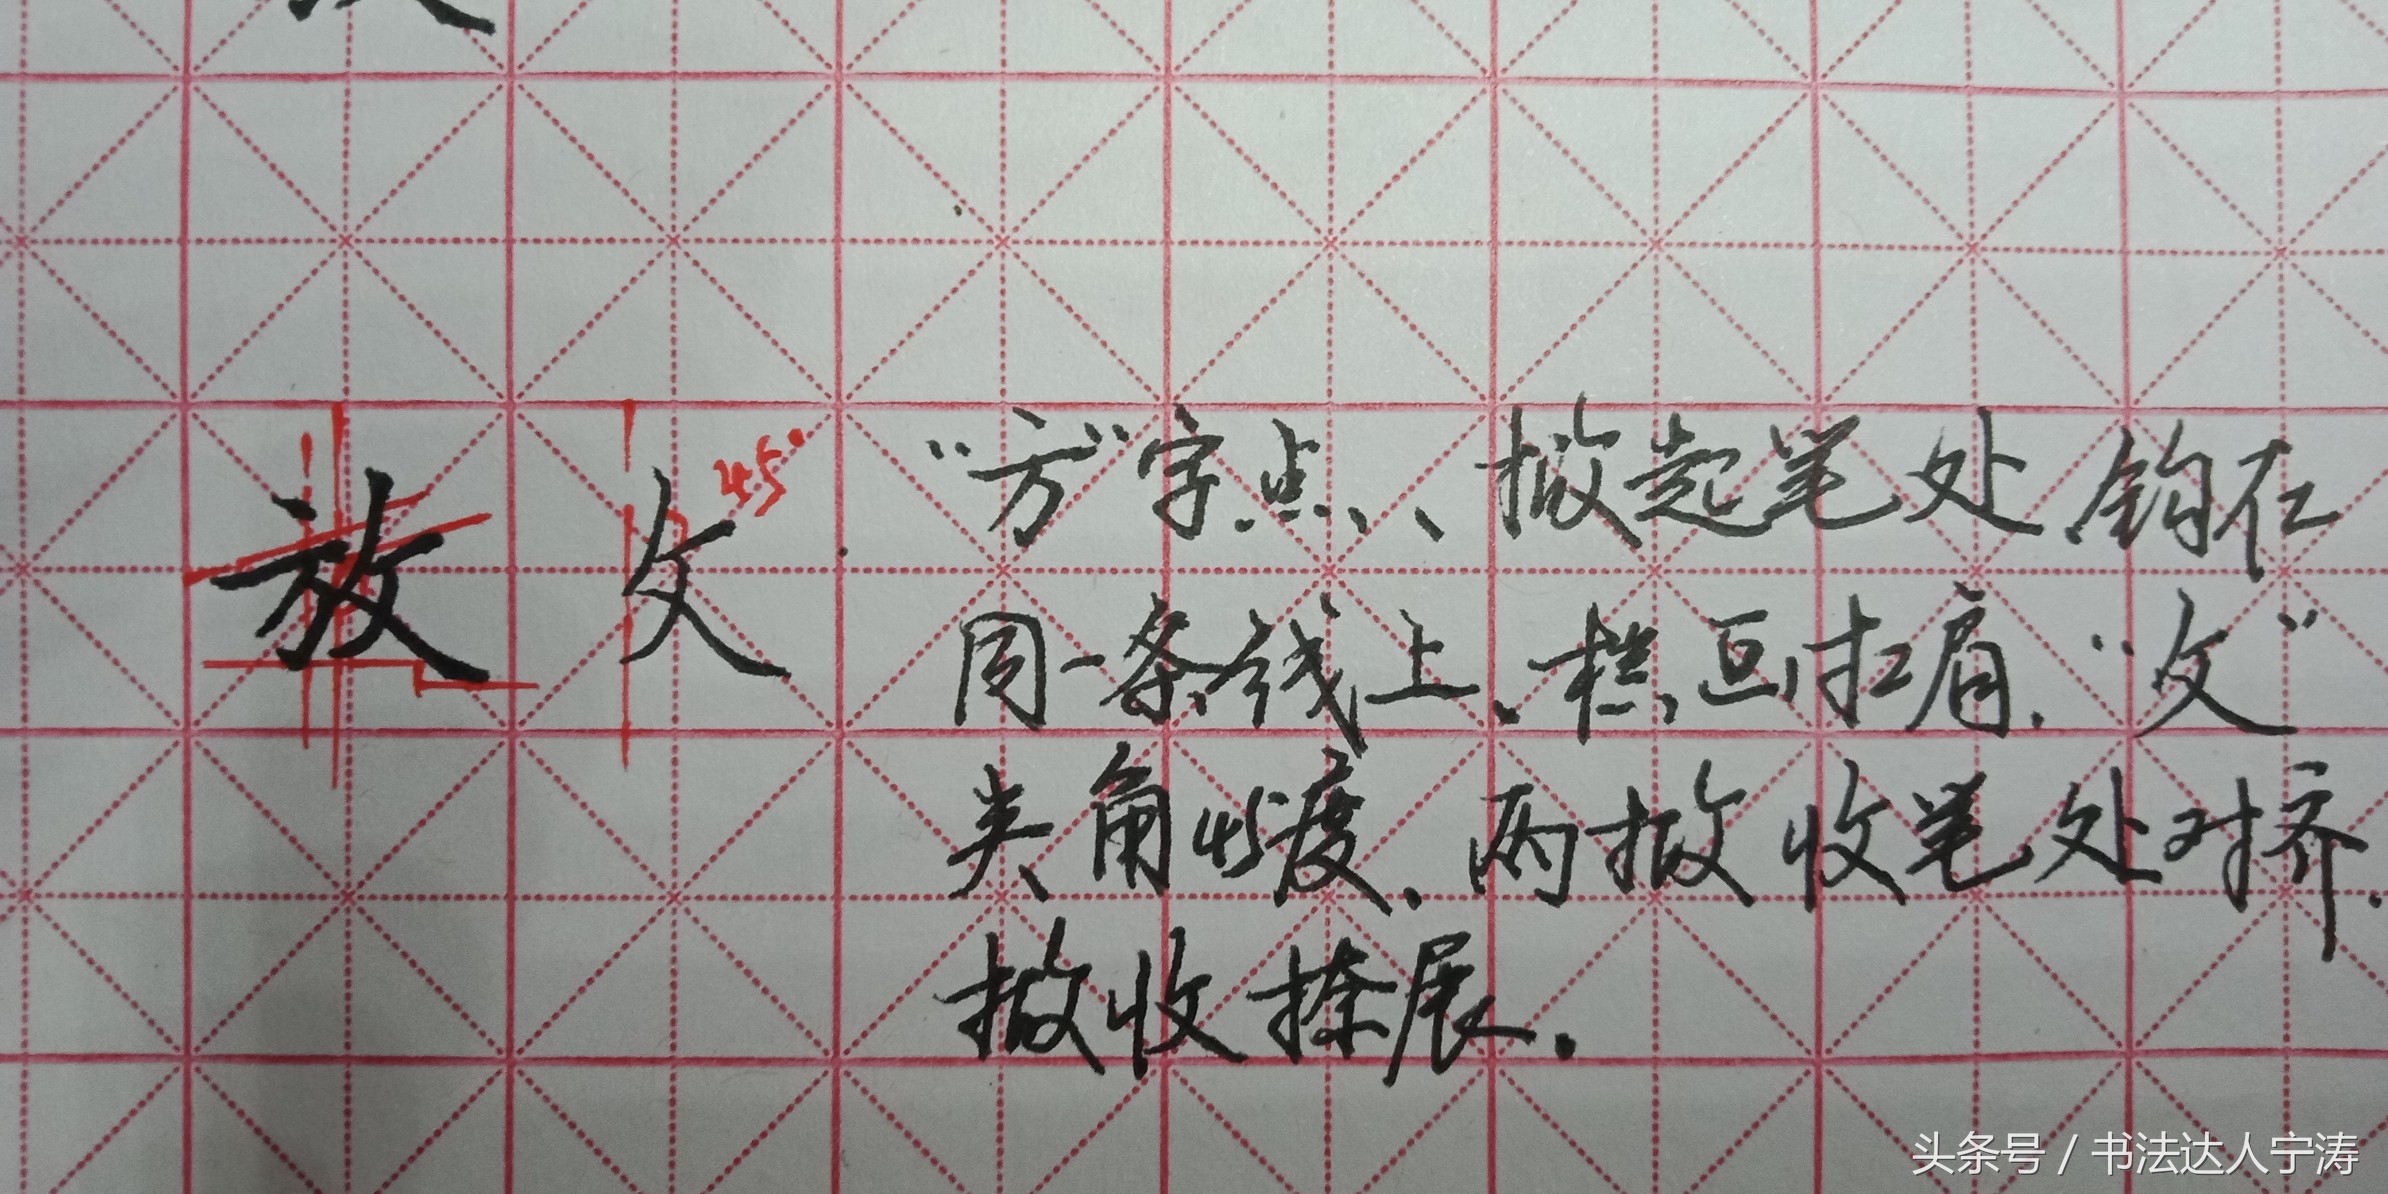 放 攵 45°
“方”字点、、撇起笔处、钩在
同一条线上、横画扛肩.“攵”
夹角45度.两撇收笔处对齐.
撇收捺展.
头条号 / 书法达人宁涛